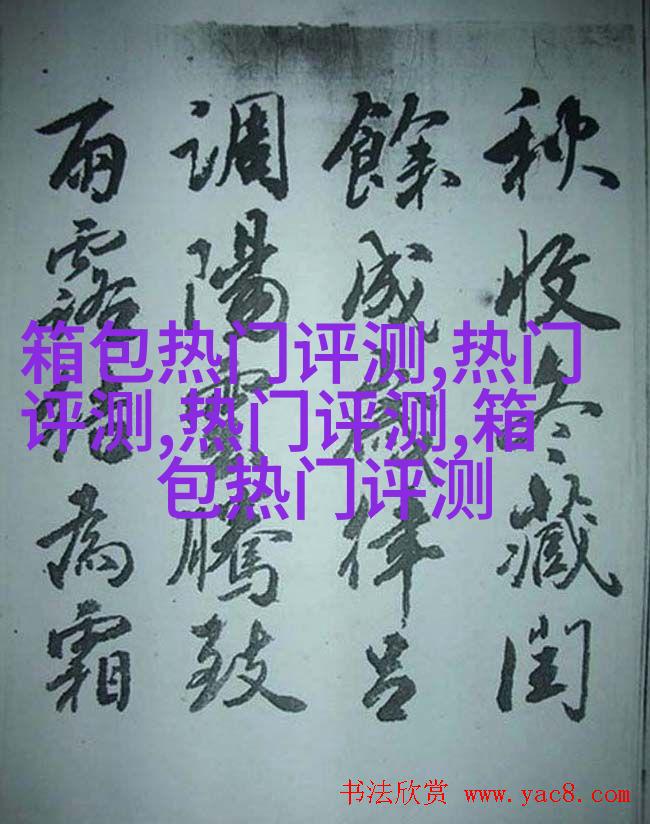 秋收冬藏閏
餘成歲律呂
調陽雲騰致
雨露結為霜
箱包热门评测,热门
评测,热门评测,箱
包热门评测
书法欣赏 www.yac8.com